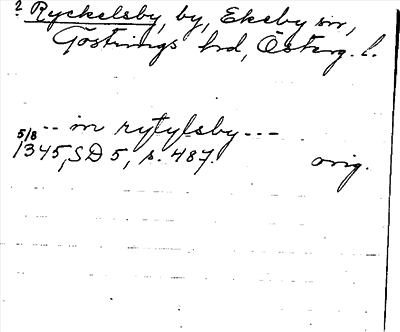 ? Ryckelsby, by, Ekeby sn,
Göstrings hd, Österg. l.
-- in rytylsby ---
5/8 1345, SD 5, s. 487. orig.